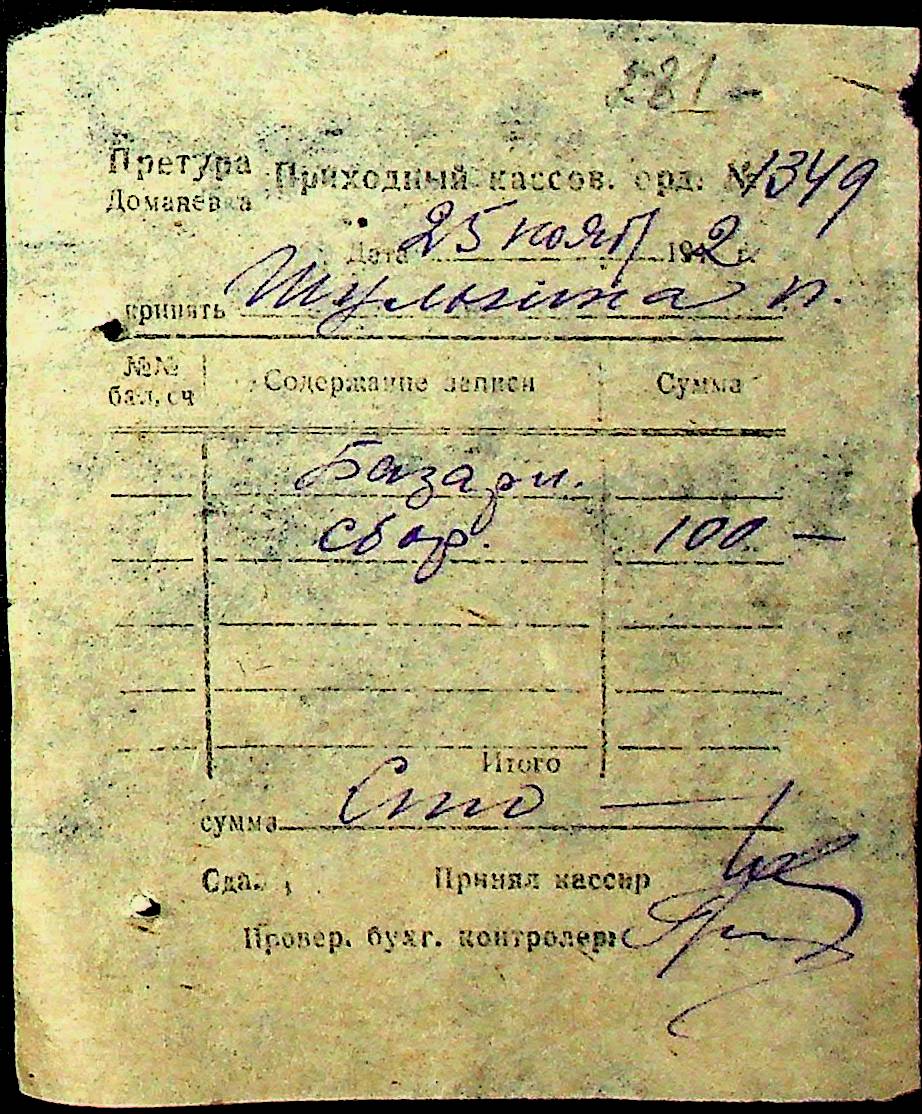 281 -
Претура Приходный кассов. орд. № 1349
Доманевка
Дата 25 нояб 1942 г.
принять Шульгина п.
№№ бал. сч Содержание записи Сумма
Базарн.
сбор. 100 —
Итого
сумма Сто —
Сдал Принял кассир
Провер. бухг. контролер